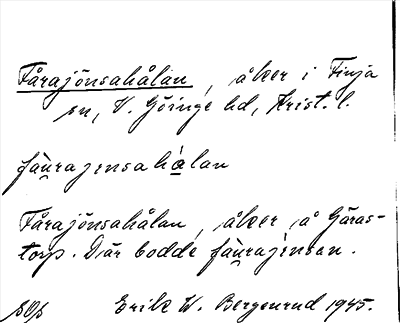 Fårajönsahålan, åker i Finja
sn, V. Göinge hd, Krist. l.
fàu̯rajensahàlan
Fårajönsahålan, åker å Gäras-
torp. Där bodde fàu̯rajènsen.
Erik W. Bergenrud 1945.